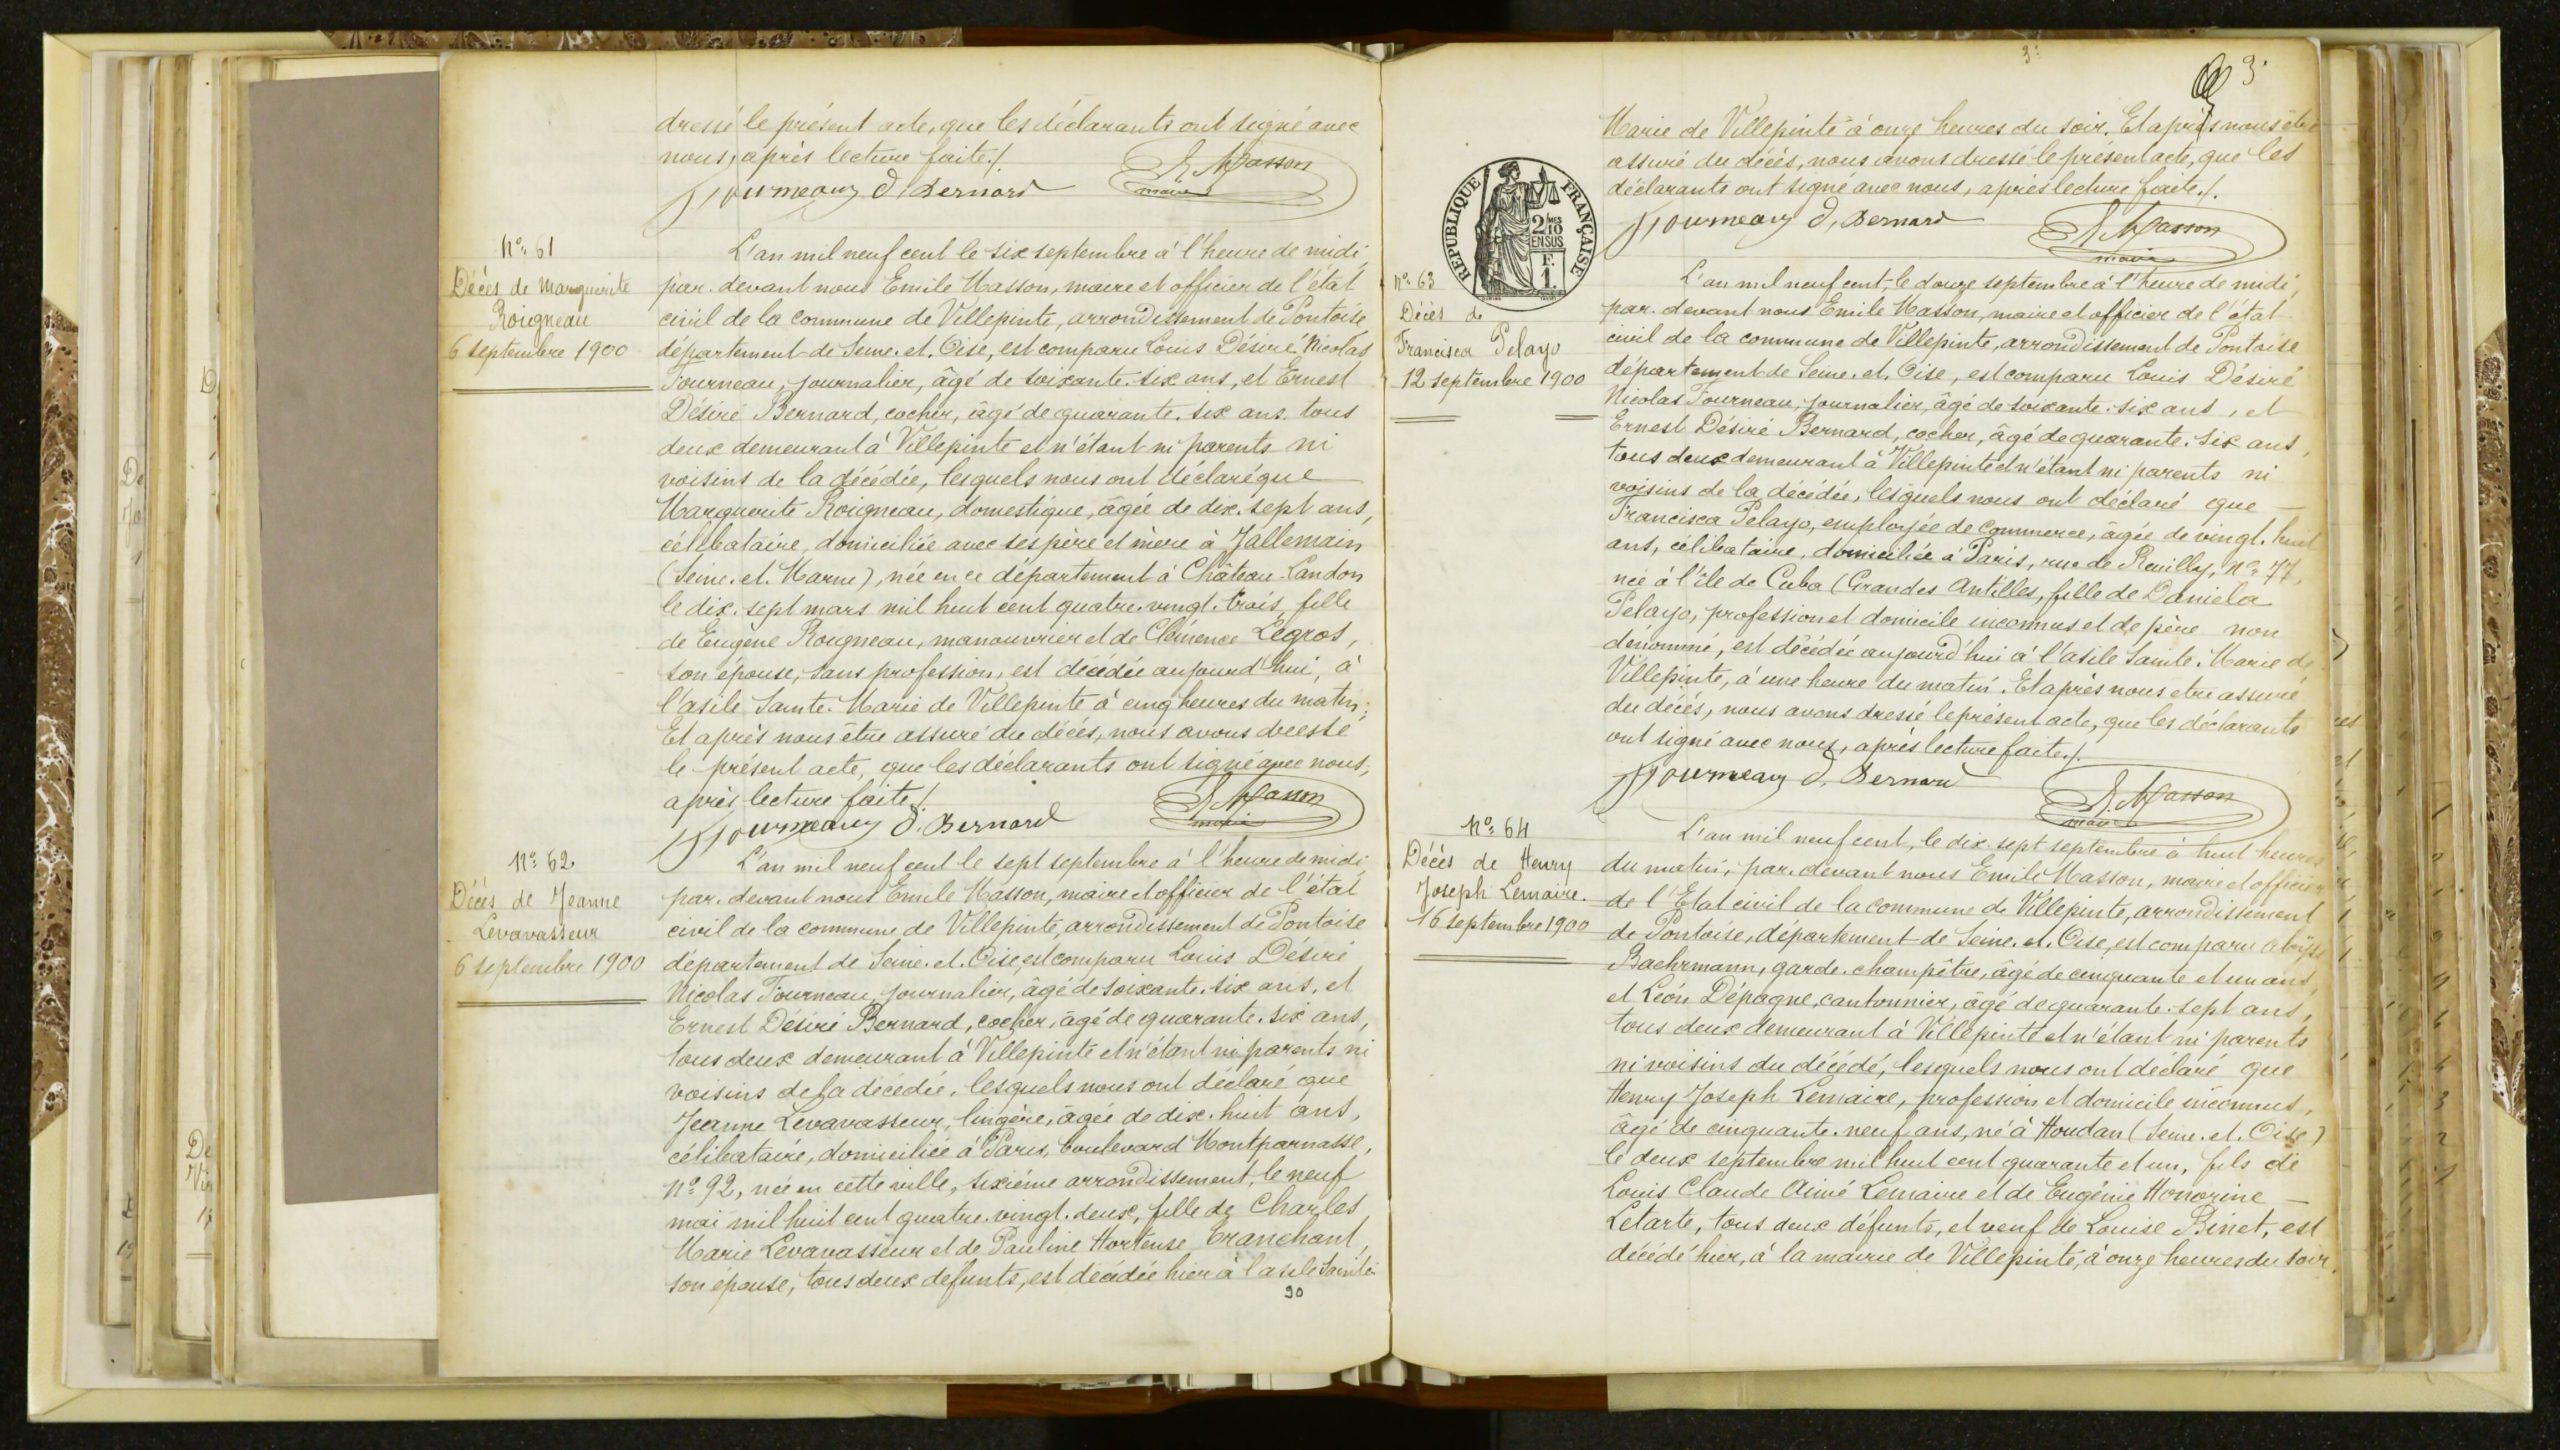 dressé le présent acte, que les déclarants ont signé avec
nous, après lecture faite./.
Fourneaux d. Bernard
E. Masson
maire
N° 61
Décès de Marguerite
Roigneau
6 septembre 1900
L'an mil neuf cent le six septembre à l'heure de midi,
par. devant nous Emile Masson, maire et officier de l'état
civil de la commune de Villepinte, arrondissement de Pontoise
département de Seine. et. Oise, est comparu Louis Désiré Nicolas
Fourneau, journalier, âgé de soixante. six ans, et Ernest
Désiré Bernard, cocher, âgé de quarante. six ans. tous
deux demeurant à Villepinte et n'étant ni parents ni
voisins de la décédée, lesquels nous ont déclaré que
Marguerite Roigneau, domestique, âgée de dix. sept ans,
célibataire, domiciliée avec ses père et mère à Jallemain
(Seine. et. Marne), née en ce département à Château-Landon
le dix. sept mars mil huit cent quatre. vingt. trois, fille
de Eugène Roigneau, manouvrier et de Clémence Legros,
son épouse, sans profession, est décédée aujourd'hui, à
l'asile Sainte. Marie de Villepinte à cinq heures du matin.
Et après nous être assuré du décès, nous avons dressé
le présent acte, que les déclarants ont signé avec nous,
après lecture faite./.
Fourneaux d. Bernard
E. Masson
maire
N° 62
Décès de Jeanne
Levavasseur
6 septembre 1900
L'an mil neuf cent le sept septembre à l'heure de midi,
par. devant nous Emile Masson, maire et officier de l'état
civil de la commune de Villepinte, arrondissement de Pontoise
département de Seine. et. Oise, est comparu Louis Désiré
Nicolas Fourneau, journalier, âgé de soixante. six ans, et
Ernest Désiré Bernard, cocher, âgé de quarante. six ans,
tous deux demeurant à Villepinte et n'étant ni parents ni
voisins de la décédée, lesquels nous ont déclaré que
Jeanne Levavasseur, lingère, âgée de dix. huit ans,
célibataire, domiciliée à Paris, boulevard Montparnasse,
N° 92, née en cette ville, sixième arrondissement, le neuf
mai mil huit cent quatre. vingt. deux, fille de Charles
Marie Levavasseur et de Pauline Hortense Tranchant,
son épouse, tous deux defunts, est décédée hier à l'asile Sainte.
90
3.
3.
Marie de Villepinte à onze heures du soir. Et après nous être
assuré du décès, nous avons dressé le présent acte, que les
déclarants ont signé avec nous, après lecture faite./.
Fourneaux d, Bernard
E. Masson
maire
REPUBLIQUE FRANÇAISE
2 MES
10
EN SUS
F.
1.
N° 63
Décès de
Francisca Pelayo
12 septembre 1900
L'an mil neuf cent, le douze septembre à l'heure de midi,
par. devant nous Emile Masson, maire et officier de l'état
civil de la commune de Villepinte, arrondissement de Pontoise
département de Seine. et. Oise, est comparu Louis Désiré
Nicolas Fourneau, journalier, âgé de soixante. six ans, et
Ernest Désiré Bernard, cocher, âgé de quarante. six ans,
tous deux demeurant à Villepinte et n'étant ni parents ni
voisins de la décédée, lesquels nous ont déclaré que
Francisca Pelayo, employée de commerce, âgée de vingt. huit
ans, célibataire, domiciliée à Paris, rue de Reuilly, N° 77,
née à l'île de Cuba (Grandes Antilles, fille de Daniela
Pelayo, profession et domicile inconnus et de père non
dénommé, est décédée aujourd'hui à l'asile Sainte. Marie de
Villepinte, à une heure du matin. Et après nous être assuré
du décès, nous avons dressé le présent acte, que les déclarants
ont signé avec nous, après lecture faite./.
Fourneaux d. Bernard
E. Masson
maire
N° 64
Décès de Henry
Joseph Lemaire.
16 septembre 1900
L'an mil neuf cent, le dix. sept septembre à huit heures
du matin, par. devant nous Emile Masson, maire et officier
de l'Etat civil de la commune de Villepinte, arrondissement
de Pontoise, département de Seine. et. Oise, est comparu Aloïse
Baehrmann, garde. champêtre, âgé de cinquante et un ans,
et Léon Dépagne, cantonnier, âgé de quarante. sept ans,
tous deux demeurant à Villepinte et n'étant ni parents
ni voisins du décédé, lesquels nous ont déclaré que
Henry Joseph Lemaire, profession et domicile inconnus,
âgé de cinquante. neuf ans, né à Houdan (Seine. et. Oise)
le deux septembre mil huit cent quarante et un, fils de
Louis Claude Aimé Lemaire et de Eugénie Honorine
Letarte, tous deux défunts, et veuf de Louise Binet, est
décédé hier, à la mairie de Villepinte, à onze heures du soir.